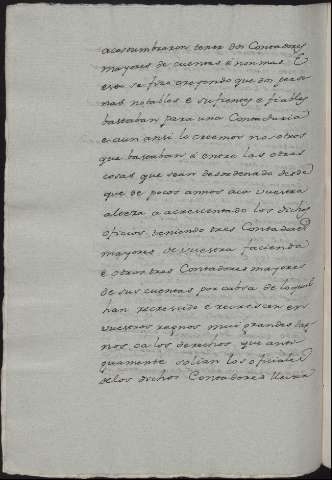 acostumbraron tener dos Contadores
mayores de cuentas é non mas. E
esto se fizo creyendo que dos perso
nas notables e suficientes e fiables
bastaban para una Contaduria
e aun ansi lo creemos nosotros
que bastaban é entre las otras
cosas que sean desordenado desde
que de pocos annos aca vuestra
alteza a acrecentado los dichos
oficios, veniendo tres Contadores
mayores de vuestra facienda
é otros tres Contadores mayores
de sus cuentas por cabsa de lo qual
han recrescido é recrescen en
vuestros regnos mui grandes dap
nos, ca los derechos que anti
guamente solian los oficiales
de los dichos Contadores llevar